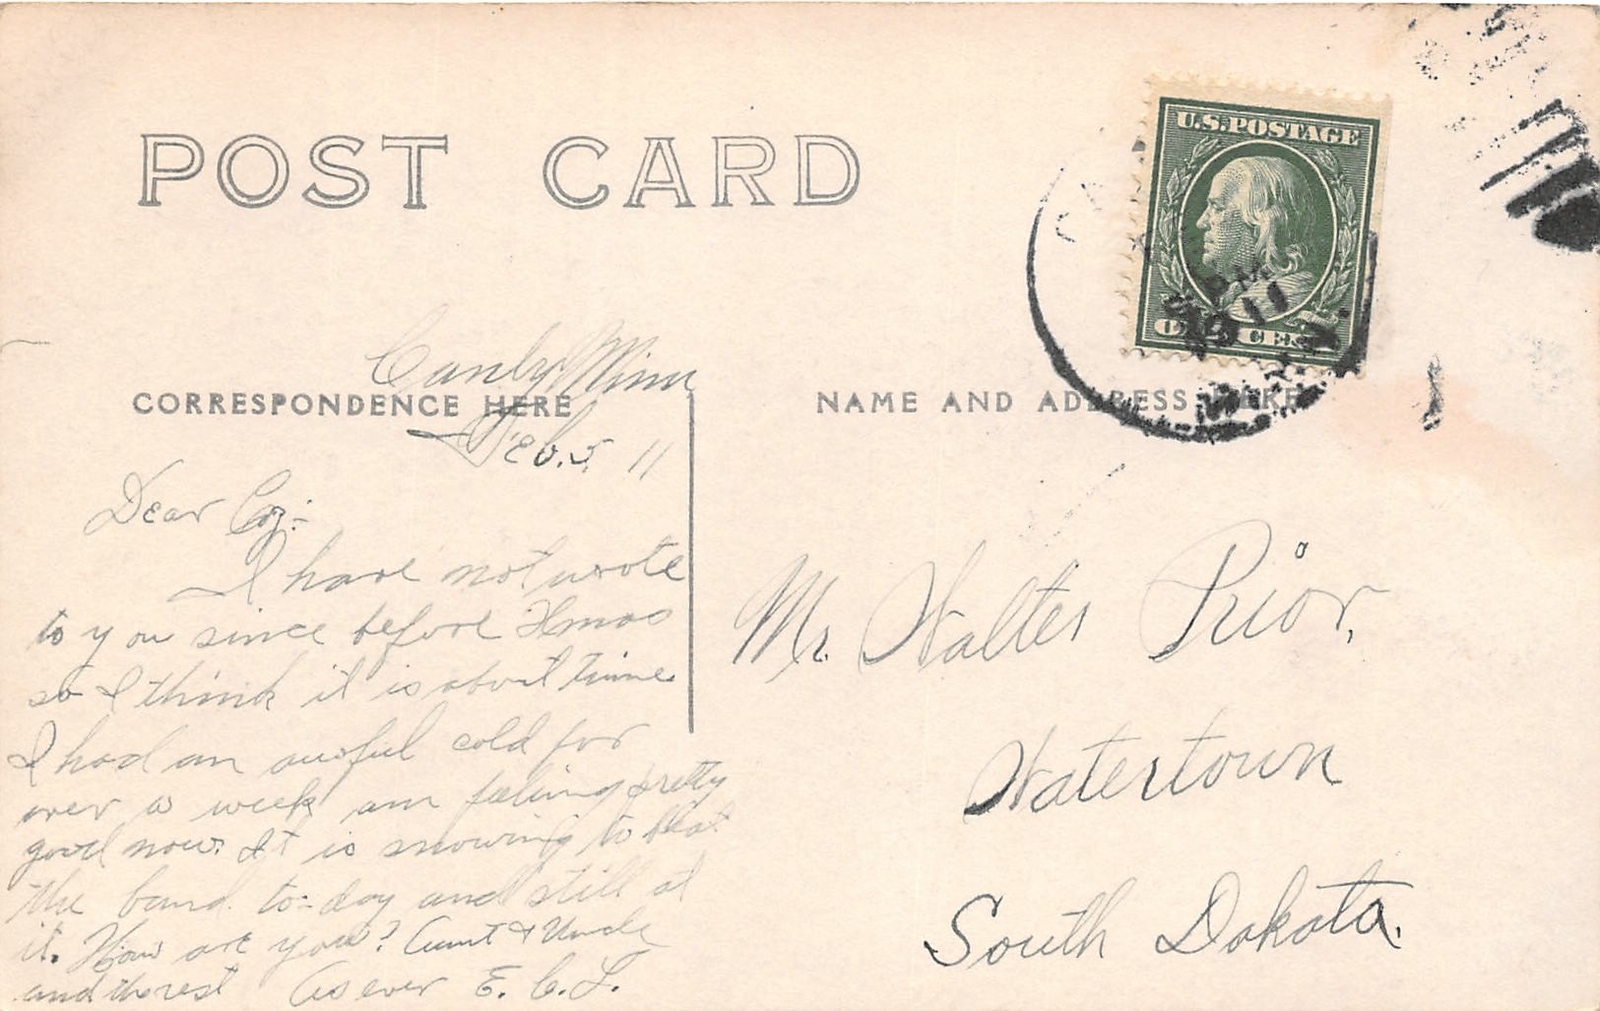 POST CARD
U.S.POSTAGE
PM
11
CORRESPONDENCE HERE
NAME AND ADDRESS HERE
Canby Minn
Feb. 5, 11
Dear Coz:-
I have not wrote
to you since before Xmas
so I think it is about time.
I had an awful cold for
over a week am feeling pretty
good now. It is snowing to beat
the band to-day and still at
it. How are you? Aunt & Uncle
and the rest As ever E. C. L.
Mr Walter Prior,
Watertown
South Dakota.